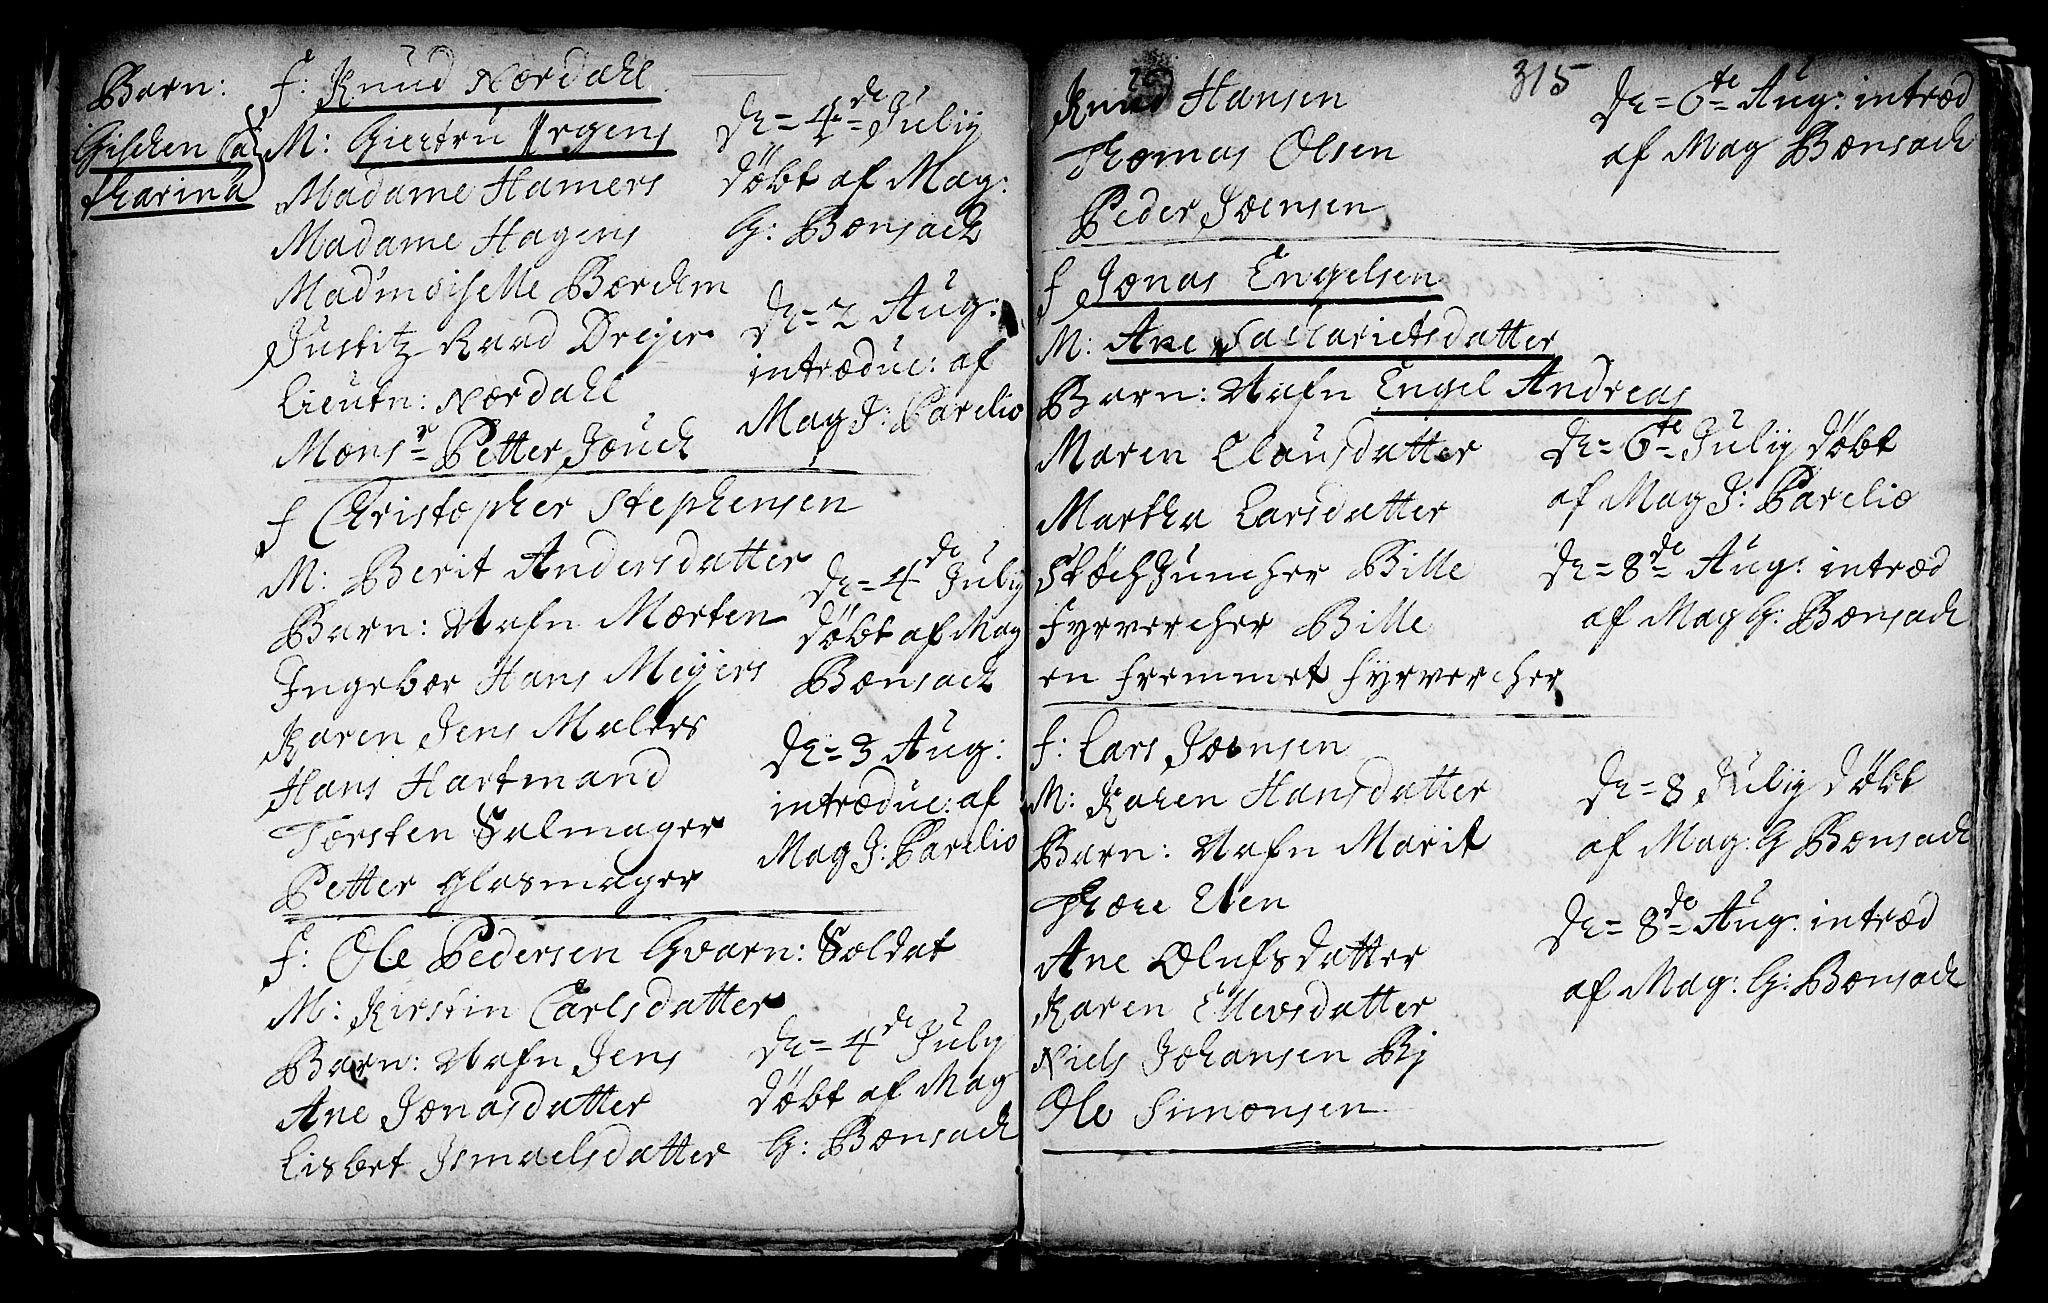 Barn:
Gischen Ca
tharina
f: Knud Nordahl
M: Giertru Irgens
Madame Hamers
Madame Hagens
Madmoiselle Bordem
Justitz Raad Dreyer
Lieutn: Nordahl
Monsr Petter Jouch
De= 4de Julij
döbt af Mag:
G: Bonsach
De= 2 Aug:
introduc: af
Mag J: Parelio
f Christopher Stephensen
M: Berit Andersdatter
Barn: Nafn Morten
Ingebor Hans Meijers
Karen Jens Malers
Hans Hartmand
Torsten Salmager
Petter Glasmager
De= 4de Julij
döbt af Mag
Bonsach
De= 3 Aug:
introduc: af
Mag J: Parelio
f: Ole Pedersen Gvarn: Soldat
M: Kirstin Carlsdatter
Barn: Nafn Jens
Ane Jonasdatter
Lisbet Ismaelsdatter
De= 4de July
döbt af Mag
G: Bonsach
315
Knud Hansen
Thomas Olsen
Peder Joensen
De= 6te Aug: introd
af Mag Bonsach
f Jonas Engelsen
M: Ane Sachariædatter
Barn: Nafn Engel Andreas
Maren Clausdatter
Martha Larsdatter
Støchjuncher Bille
Fyrvercher Bille
en fremmet fyrvercher
De= 6te Julij döbt
af Mag J: Parelio
De= 8de Aug: introd
af Mag G: Bonsach
f: Lars Joensen
M: Karen Hansdatter
Barn: Nafn Marit
Thore Eten
Ane Olufsdatter
Karen Ellevsdatter
Niels Johansen Bÿ
Ole Simonsen
De= 8 Julij döbt
af Mag: G Bonsach
De= 8de Aug: introd
af Mag: G: Bonsach